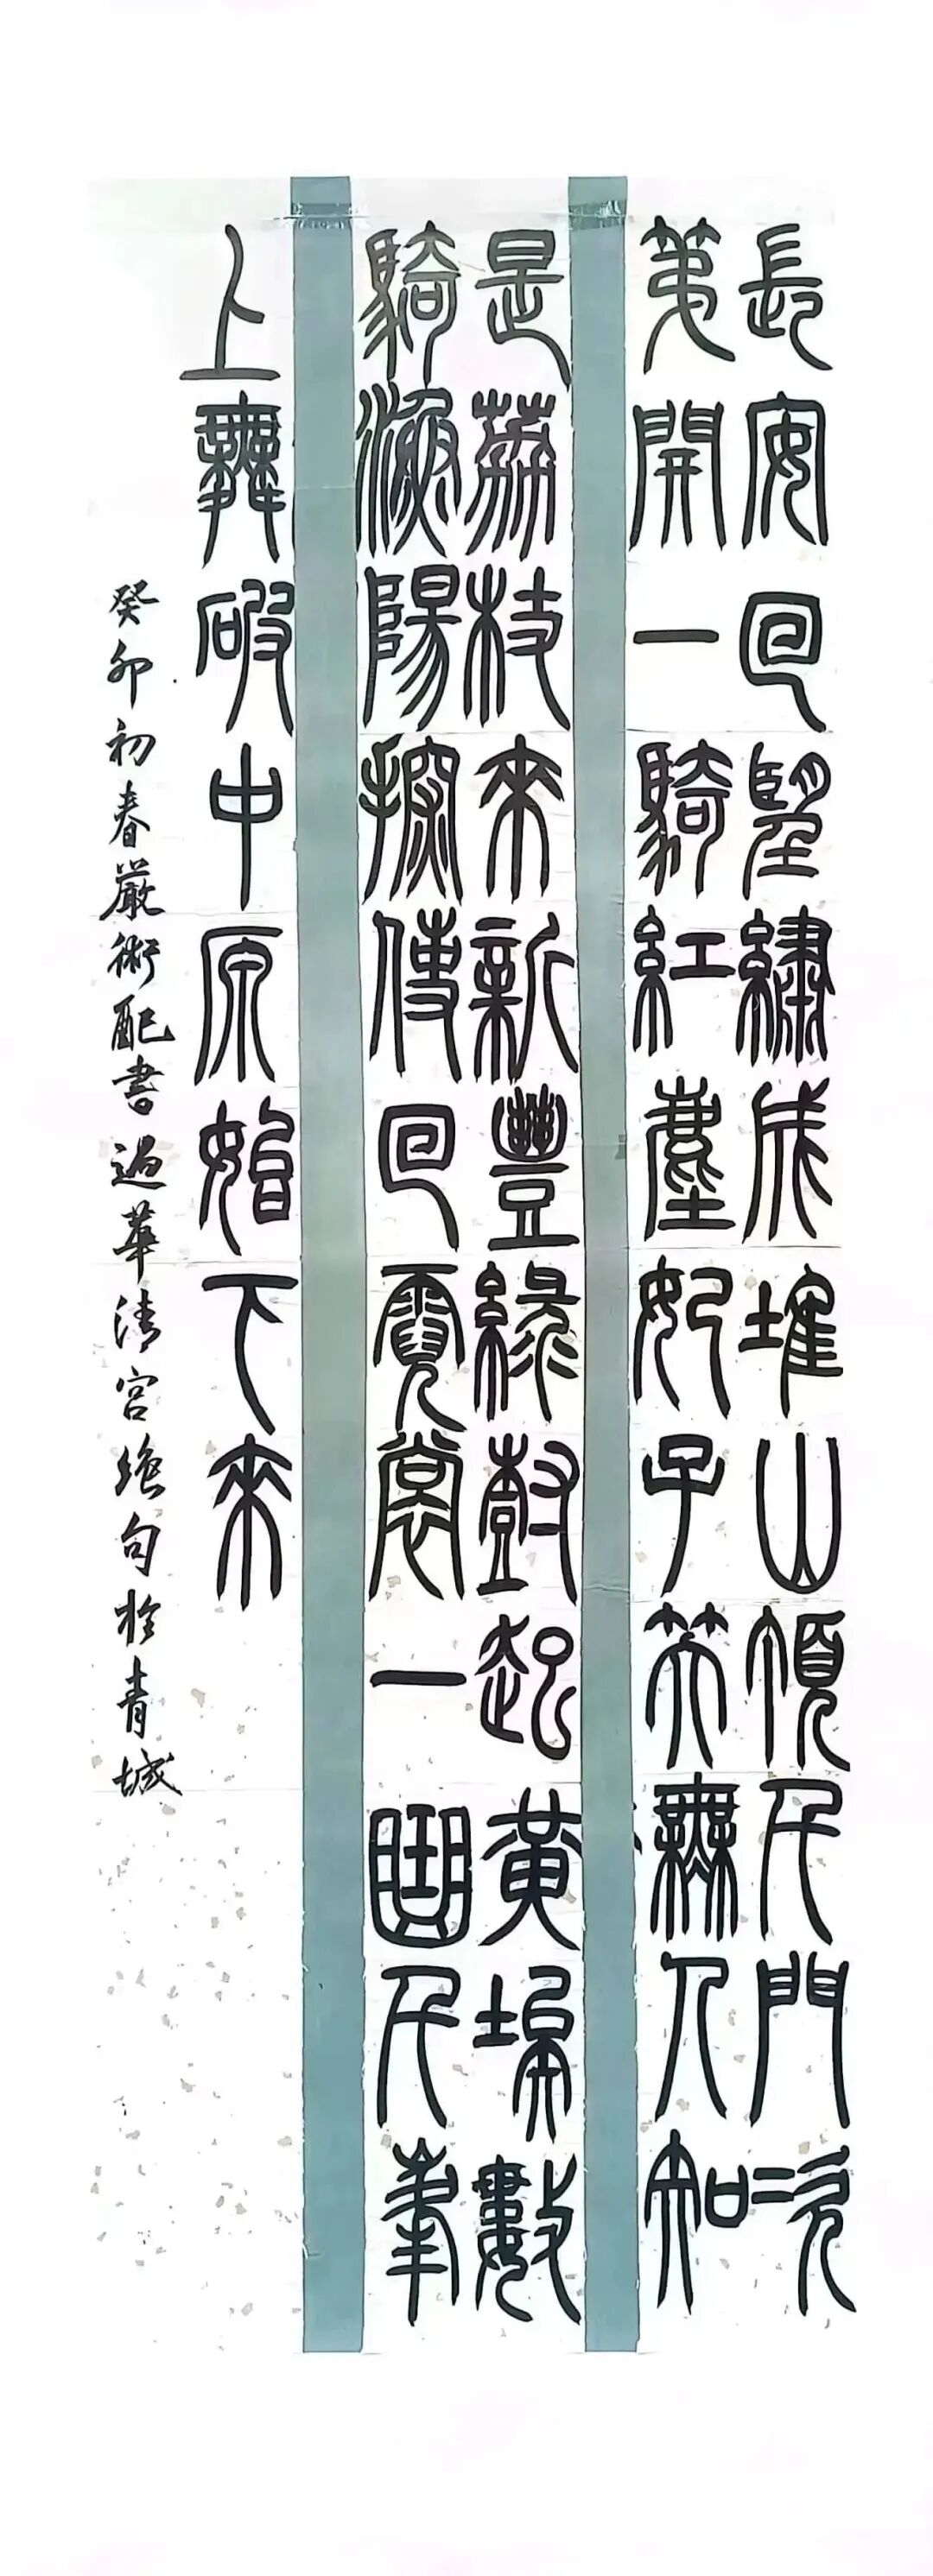 長安回望繡成堆山頂千門次
第開一騎紅塵妃子笑無人知
是荔枝來新豐綠樹起黃埃數
騎漁陽探使回霓裳一曲千峯
上舞破中原始下來
癸卯初春嚴術配書過華清宮絕句於青城